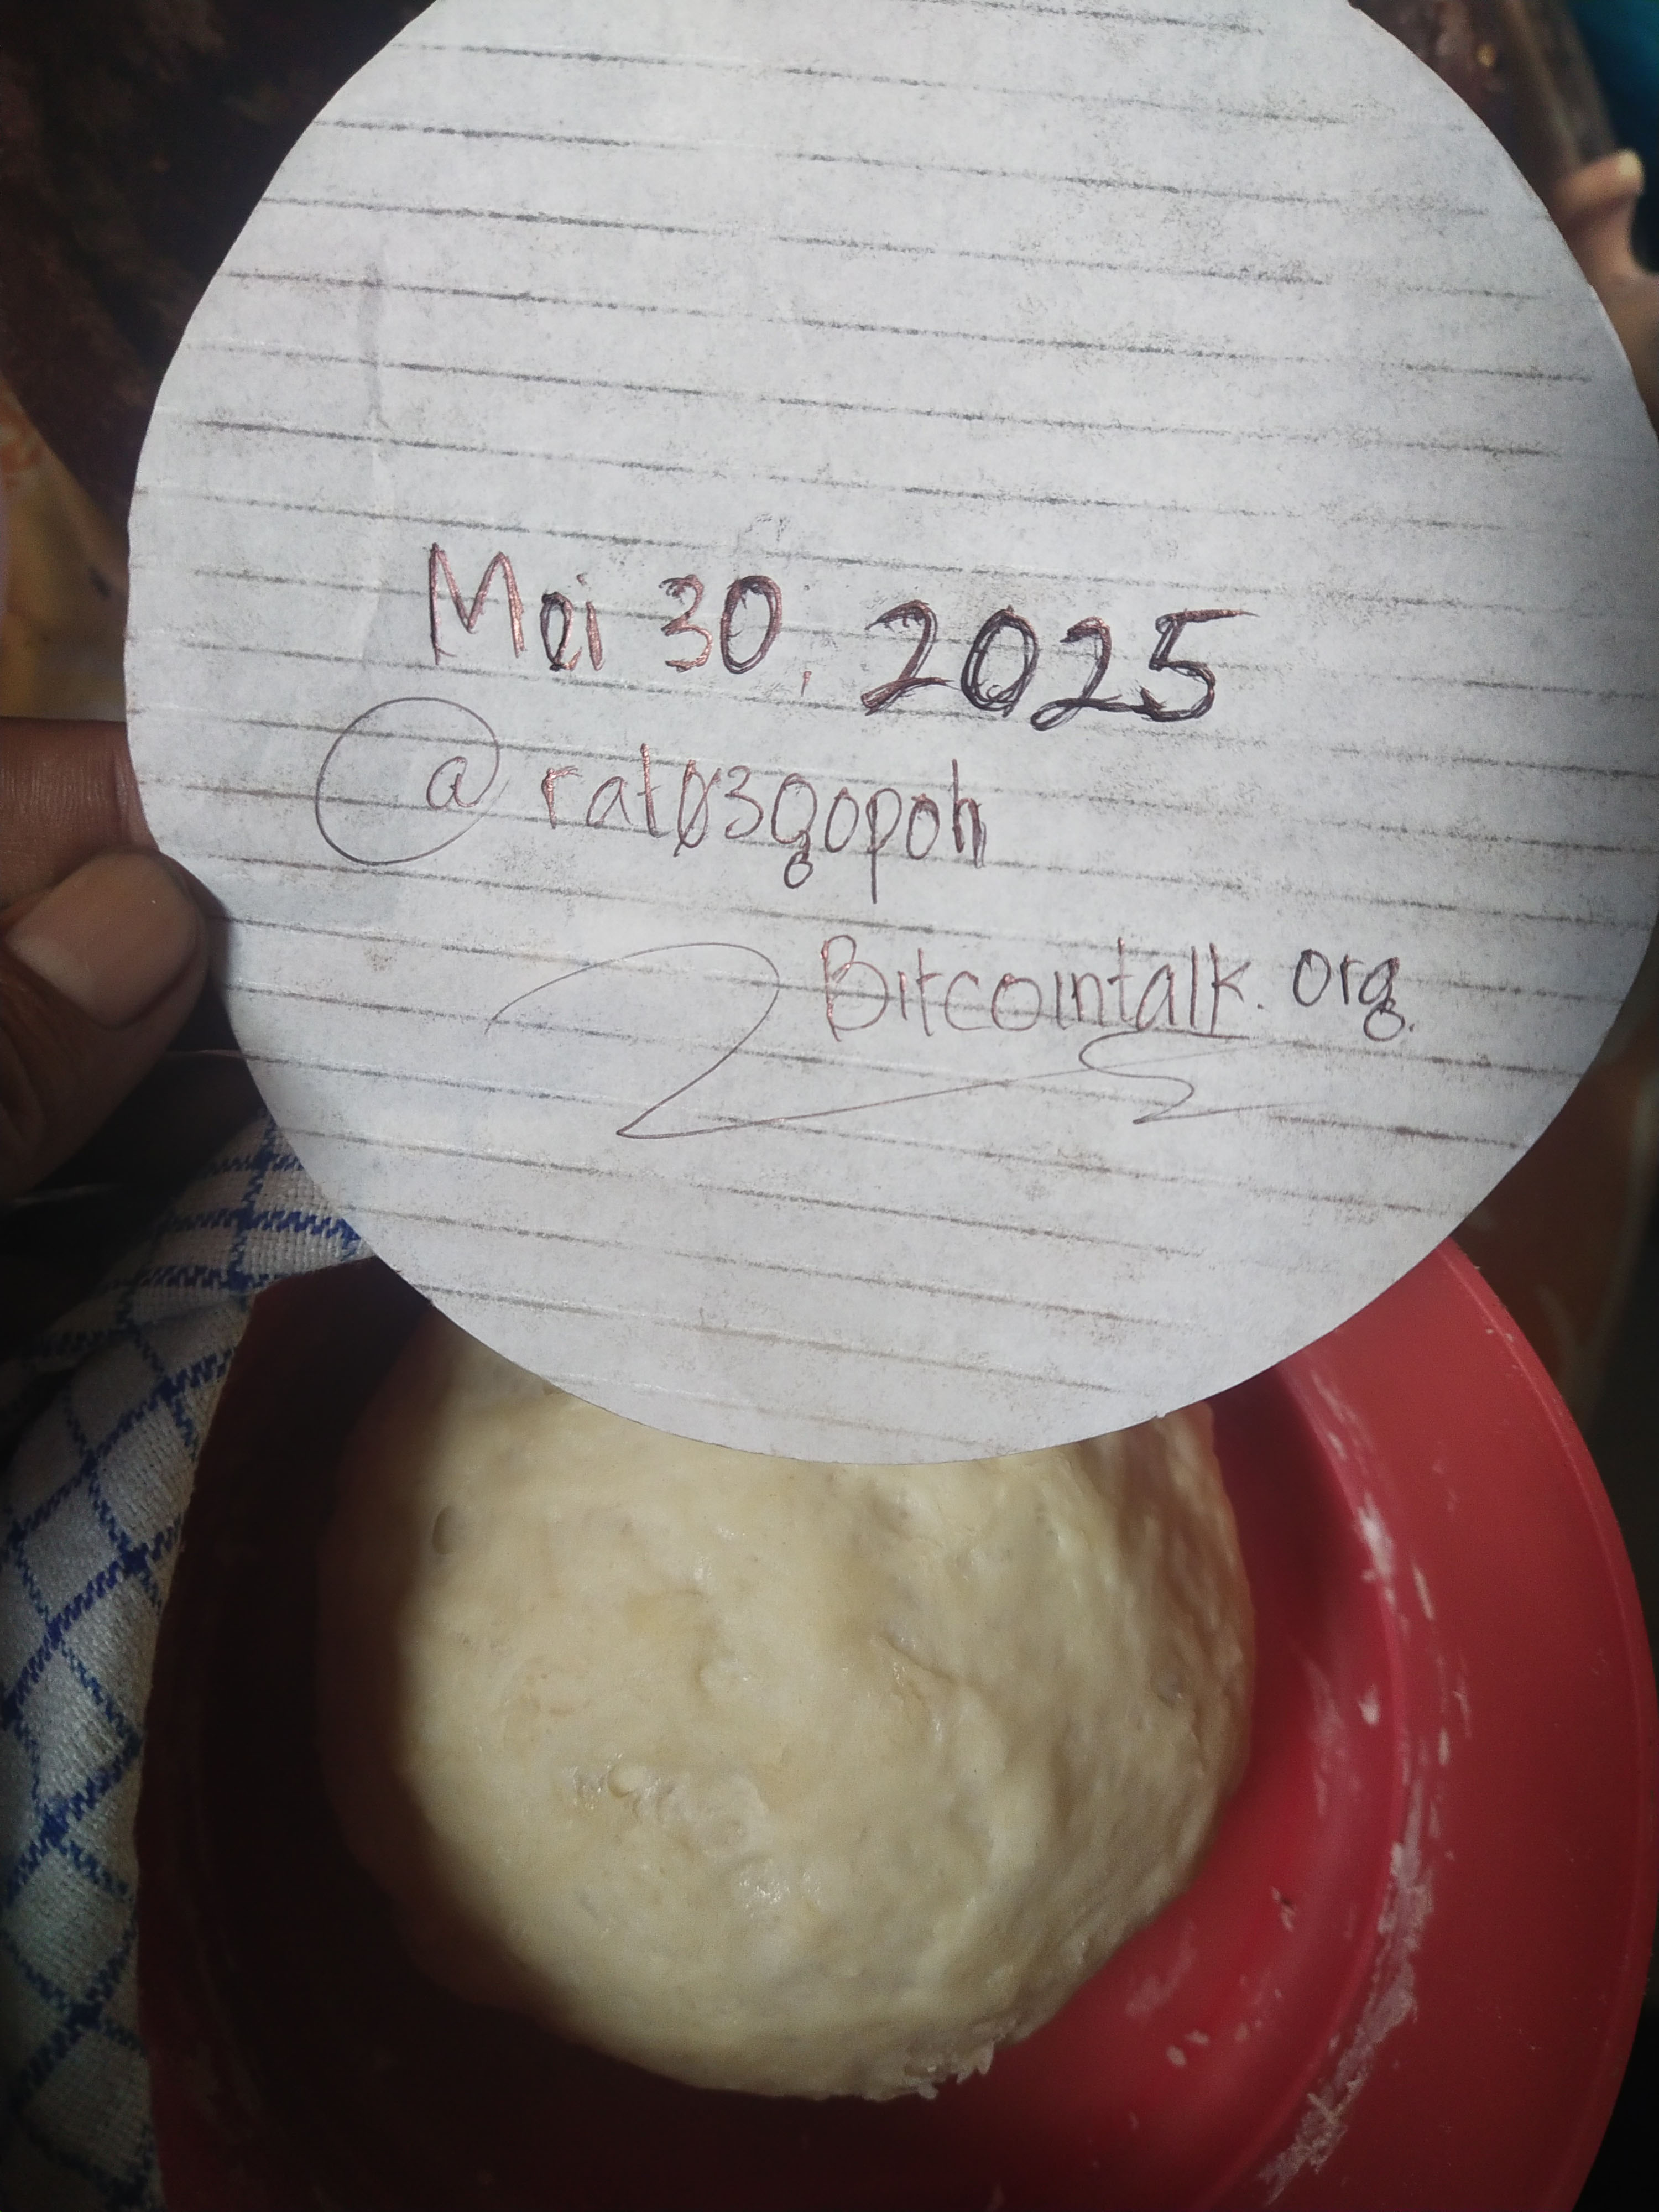 Mei 30, 2025
@rat03gopoh
Bitcointalk.org.